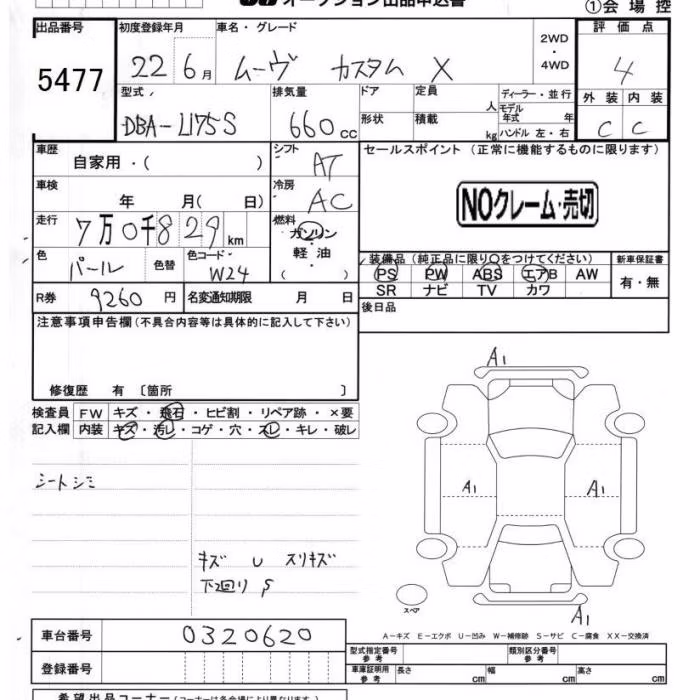 オークション出品申込書
①会場控
出品番号 初度登録年月 車名・グレード 2WD・4WD 評価点
5477 22 6月 ムーヴ カスタム X 4
型式 排気量 ドア 定員 人 ディーラー・並行 外装 内装
DBA-L175S 660cc 形状 積載 kg モデル年式 年 ハンドル 左・右 C C
車歴 自家用・( ) シフト AT セールスポイント(正常に機能するものに限ります)
車検 年 月( 日) 冷房 AC NOクレーム・売切
走行 7万0千829km 燃料 ガソリン
軽油
( )
色 パール 色替 色コード W24
装備品(純正品に限り○をつけてください) 新車保証書
PS PW ABS エアB AW 有・無
SR ナビ TV カワ
R券 9260円 名変通知期限 月 日 後日品
注意事項申告欄(不具合内容等は具体的に記入して下さい)
修復歴 有 〔箇所 〕
検査員 FW キズ・飛石・ヒビ割・リペア跡・×要
記入欄 内装 キズ・汚レ・コゲ・穴・スレ・キレ・破レ
シートシミ
キズ U スリキズ
下回り S
A1
A1 A1
スペア
A1
A-キズ E-エクボ U-凹み W-補修跡 S-サビ C-腐食 XX-交換済
車台番号 0320620 型式指定番号 参考 類別区分番号 参考
登録番号 車庫証明用 参考 長さ cm 幅 cm 高さ cm
希望出品コーナー(コーナーは各会場により異なります)